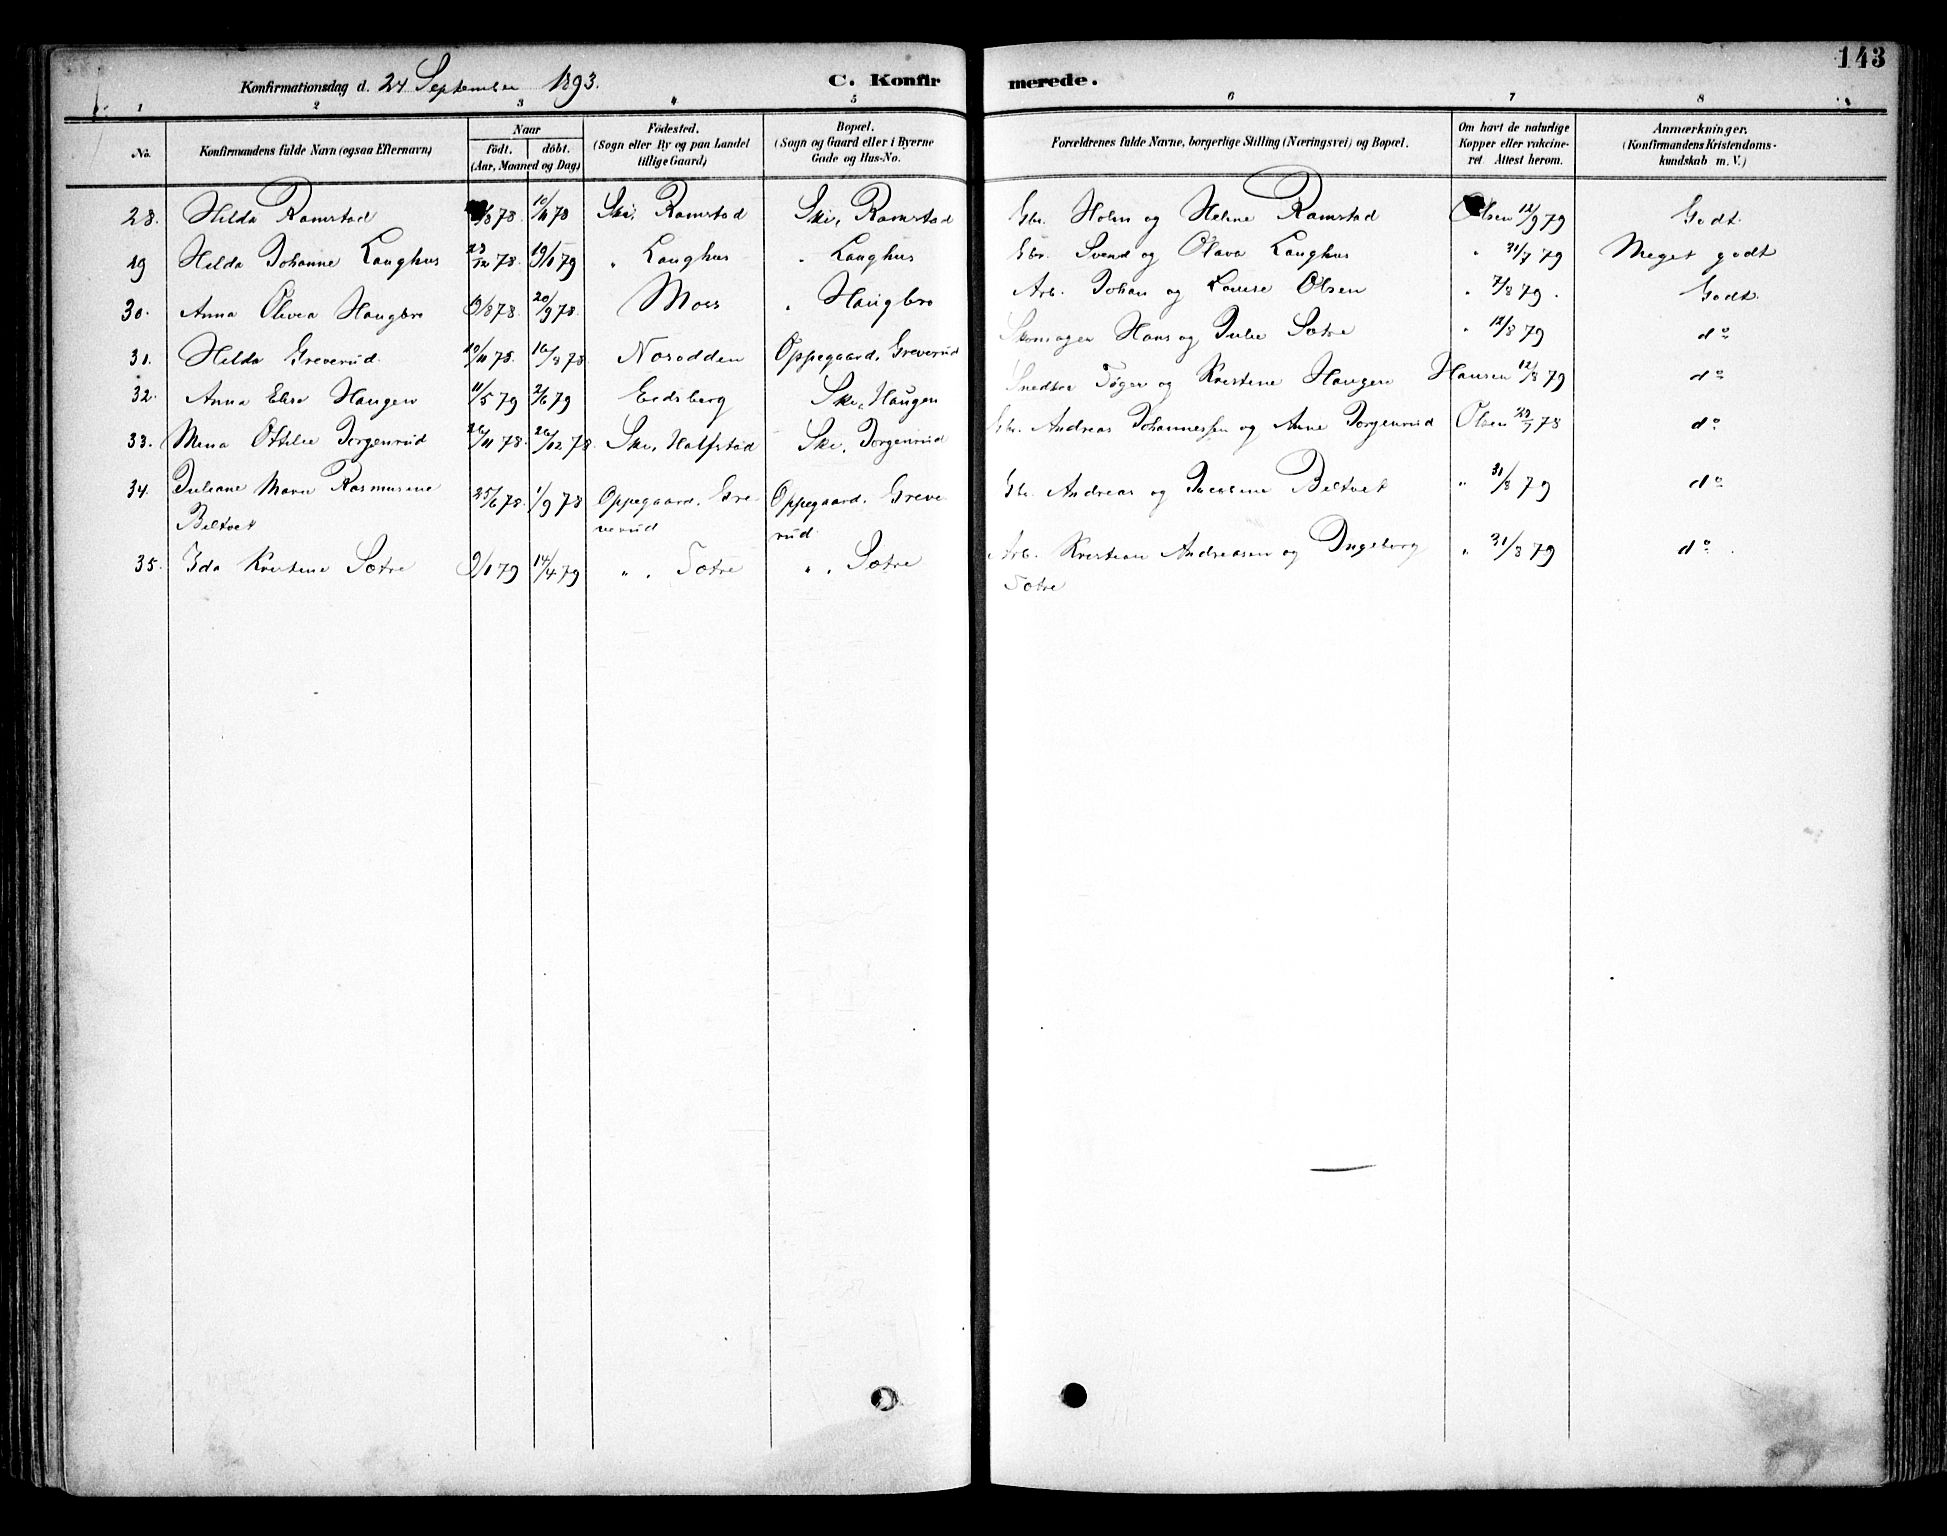 143
Konfirmationsdag d. 24 September 1893.
C. Konfirmerede.
1 2 3 4 5 6 7 8
No.
Konfirmandens fulde Navn (ogsaa Efternavn)
Naar
födt. döbt.
(Aar, Maaned og Dag)
Födested.
(Sogn eller By og paa Landet
tillige Gaard)
Bopæl.
(Sogn og Gaard eller i Byerne
Gade og Hus-No.
Forældrenes fulde Navne, borgerlige Stilling (Næringsvei) og Bopæl.
Om havt de naturlige
Kopper eller vakcine-
ret. Attest herom.
Anmærkninger.
(Konfirmandens Kristendoms-
kundskab m. V.)
28. Hilda Ramstad /8 78. 10/11 78 Ski, Ramstad Ski, Ramstad Gbr. Holm og Helene Ramstad Olsen 12/9 79 Godt.
29 Hilda Johanne Langhus 23/12 78. 19/1 79 „ Langhus „ Langhus Gbr. Svend og Olava Langhus " 31/7 79 Meget godt
30. Anna Olivia Haugbro 9/8 78. 20/9 78. Moss „ Haugbro Arb. Johan og Lovise Olsen " 7/8 79. Godt.
31. Hilda Greverud. 10/11 78. 16/8 78 Nesodden Oppegaard, Greverud Skomager Hans og Julie Sætre " 12/8 79 do
32. Anna Elise Haugen 11/5 79 2/6 79 Eidsberg Ski, Haugen Snedker Tøger og Kristine Haugen Hansen 12/8 79 do
33. Mina Ottilie Jorgenrud 26/11 78. 26/12 78. Ski, Halfstad Ski, Jorgenrud Gbr. Andreas Johannessen og Anne Jorgenrud Olsen 23/7 78 do
34. Juliane Marie Rasmusine 25/6 78. 1/9 78 Oppegaard, Gre- Oppegaard, Greve- Gbr. Andreas og Jacobine Biltvet " 31/8 79 do
Biltvet verud rud.
35. Ida Kristine Sætre 9/1 79 14/4 79 „ „ Sætre „ „ Sætre Arb. Kristian Andreasen og Ingeborg " 31/8 79 do.
Sætre